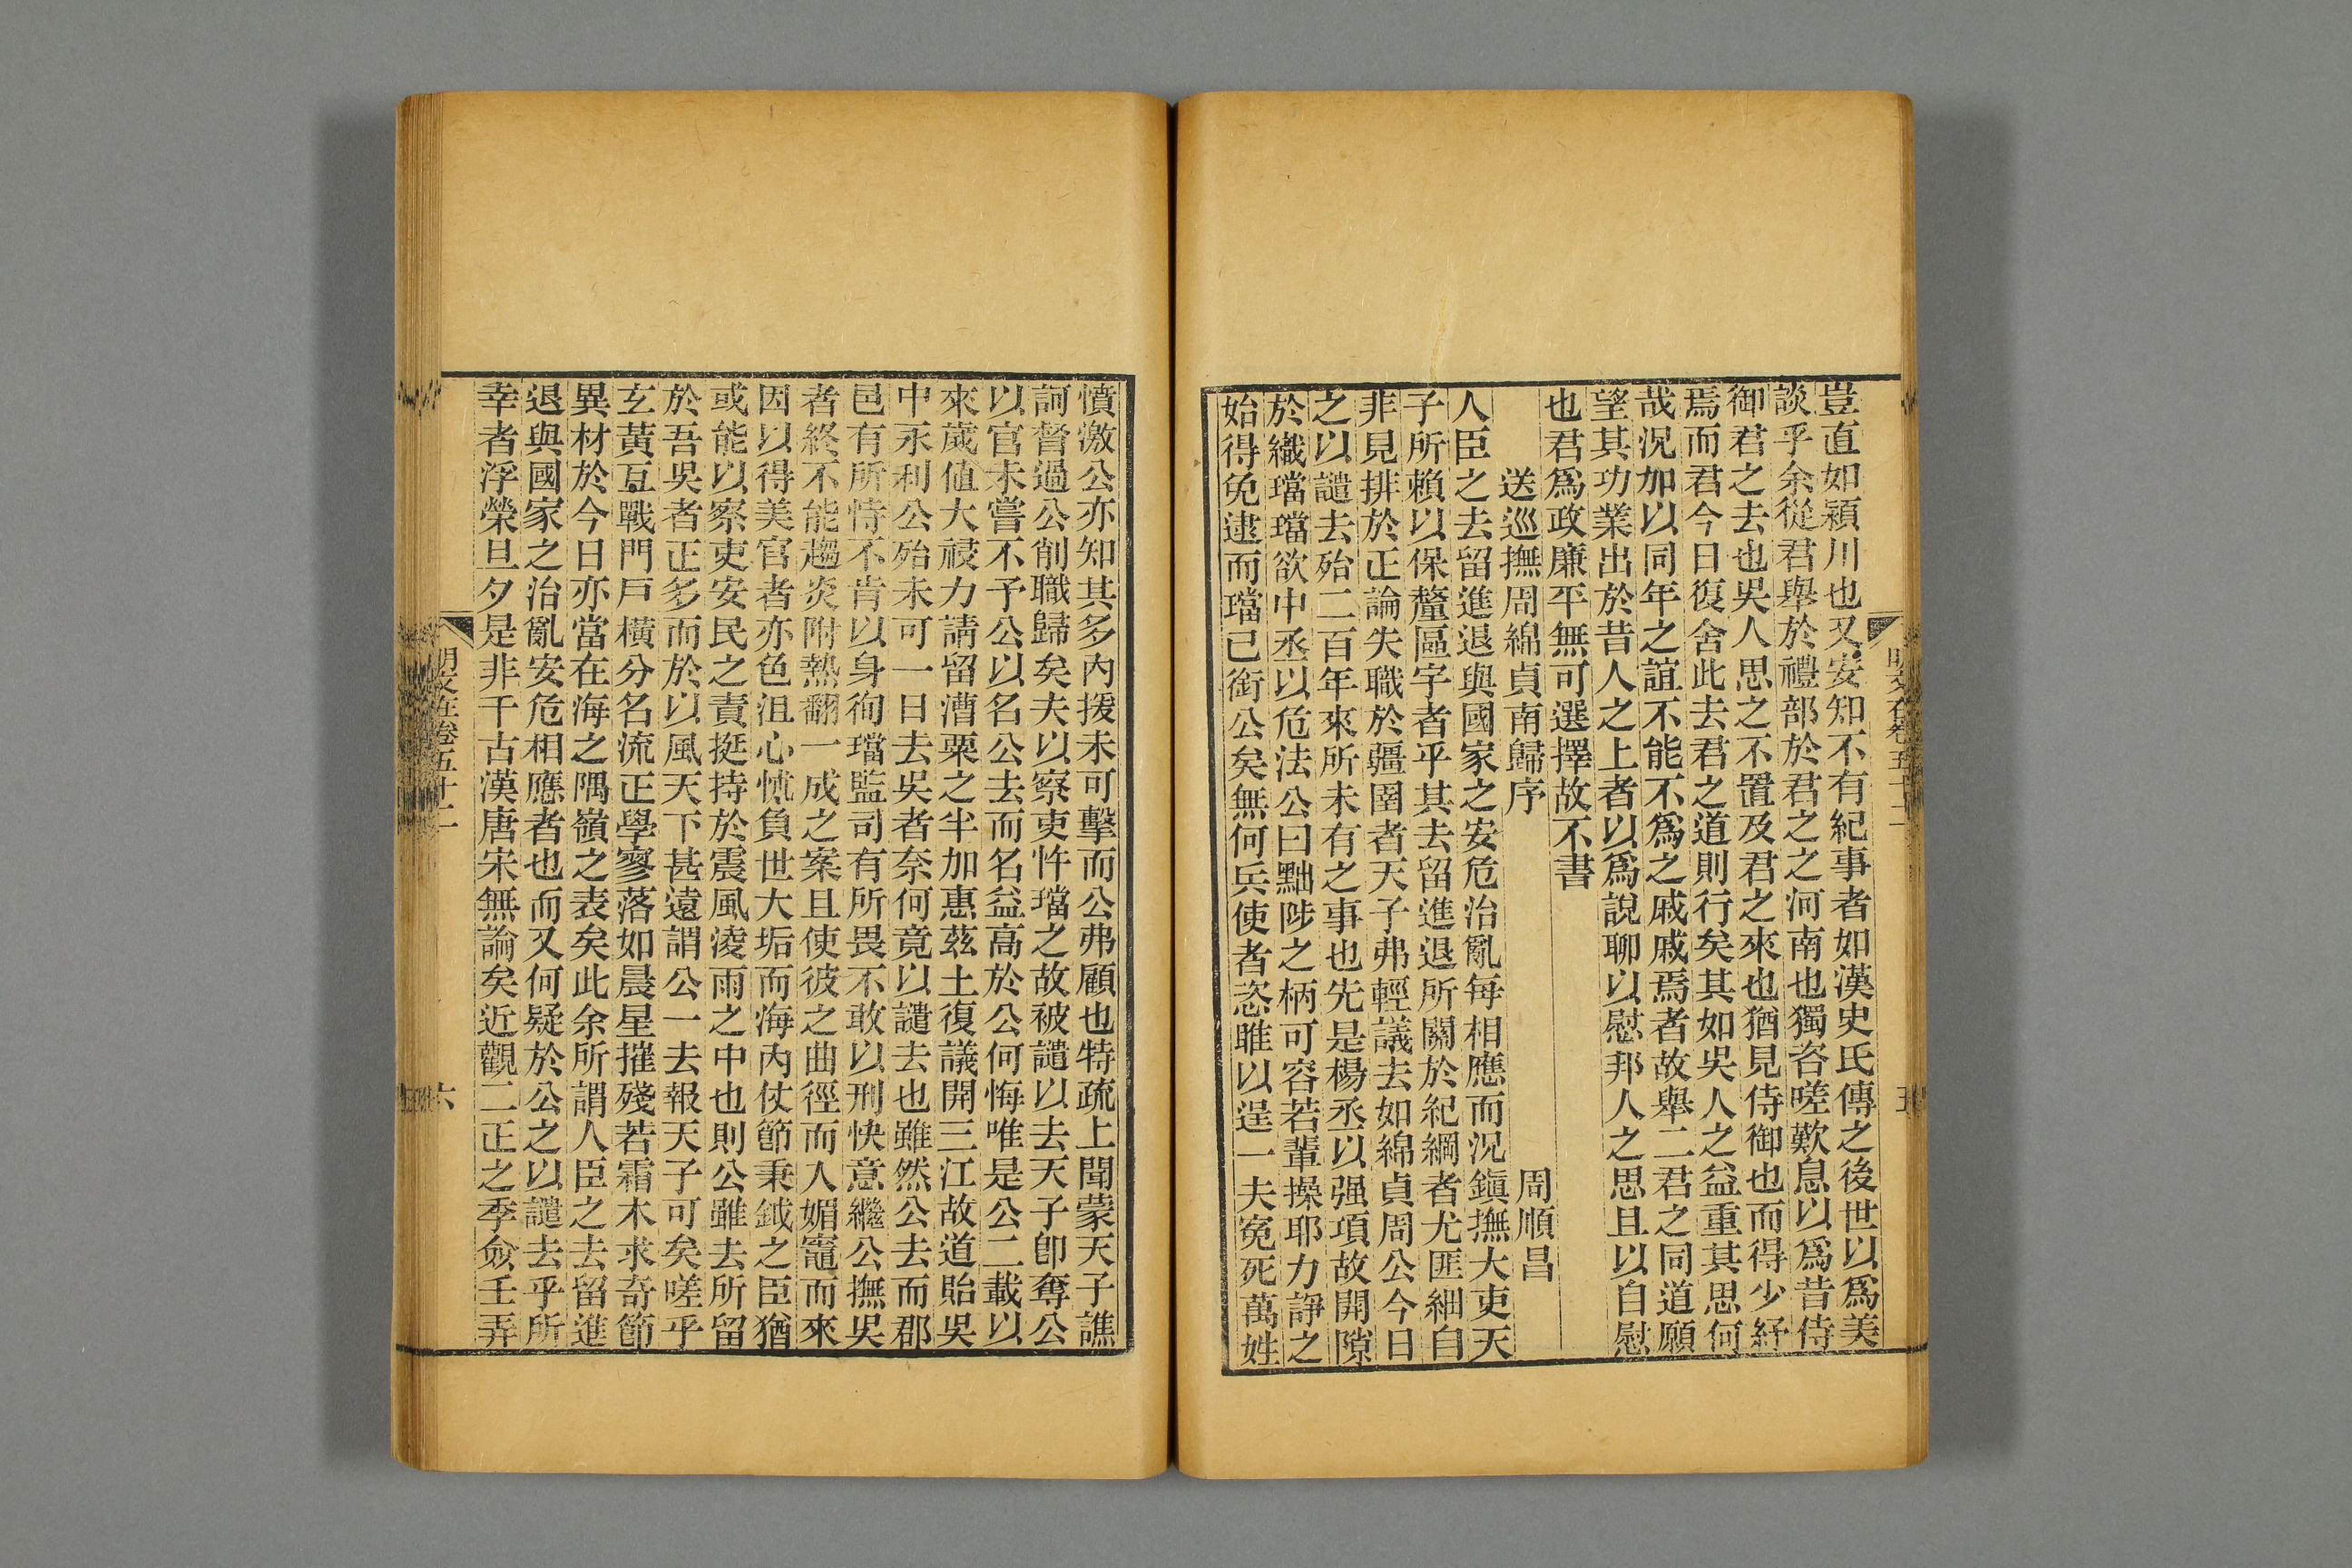 豈直如潁川也又安知不有紀事者如漢史氏傳之後世以爲美
談乎余從君舉於禮部於君之之河南也獨咨嗟歎息以爲昔侍
御君之去也吳人思之不置及君之來也猶見侍御也而得少紓
焉而君今日復舍此去君之道則行矣其如吳人之益重其思何
哉況加以同年之誼不能不爲之戚戚焉者故舉二君之同道願
望其功業出於昔人之上者以爲說聊以慰邦人之思且以自慰
也君爲政廉平無可選擇故不書
送巡撫周綿貞南歸序
周順昌
人臣之去留進退與國家之安危治亂每相應而況鎭撫大吏天
子所賴以保釐區宇者乎其去留進退所關於紀綱者尤匪細自
非見排於正論失職於疆圉者天子弗輕議去如綿貞周公今日
之以譴去殆二百年來所未有之事也先是楊丞以强項故開隙
於織璫璫欲中丞以危法公曰黜陟之柄可容若輩操耶力諍之
始得免逮而璫已銜公矣無何兵使者恣睢以逞一夫冤死萬姓
憤激公亦知其多內援未可擊而公弗顧也特疏上聞蒙天子譙
訶督過公削職歸矣夫以察吏忤璫之故被譴以去天子卽奪公
以官未嘗不予公以名公去而名益高於公何悔唯是公二載以
來歲値大祲力請留漕粟之半加惠茲土復議開三江故道貽吳
中永利公殆未可一日去吳者奈何竟以譴去也雖然公去而郡
邑有所恃不肯以身徇璫監司有所畏不敢以刑快意繼公撫吳
者終不能趨炎附熱翻一成之案且使彼之曲徑而入媚竈而來
因以得美官者亦色沮心怵負世大垢而海內仗節秉鉞之臣猶
或能以察吏安民之責挺持於震風淩雨之中也則公雖去所留
於吾吳者正多而於以風天下甚遠謂公一去報天子可矣嗟乎
玄黃互戰門戶橫分名流正學寥落如晨星摧殘若霜木求奇節
異材於今日亦當在海之隅嶺之表矣此余所謂人臣之去留進
退與國家之治亂安危相應者也而又何疑於公之以譴去乎所
幸者浮榮旦夕是非千古漢唐宋無論矣近觀二正之季僉壬弄
明文在卷五十二
六